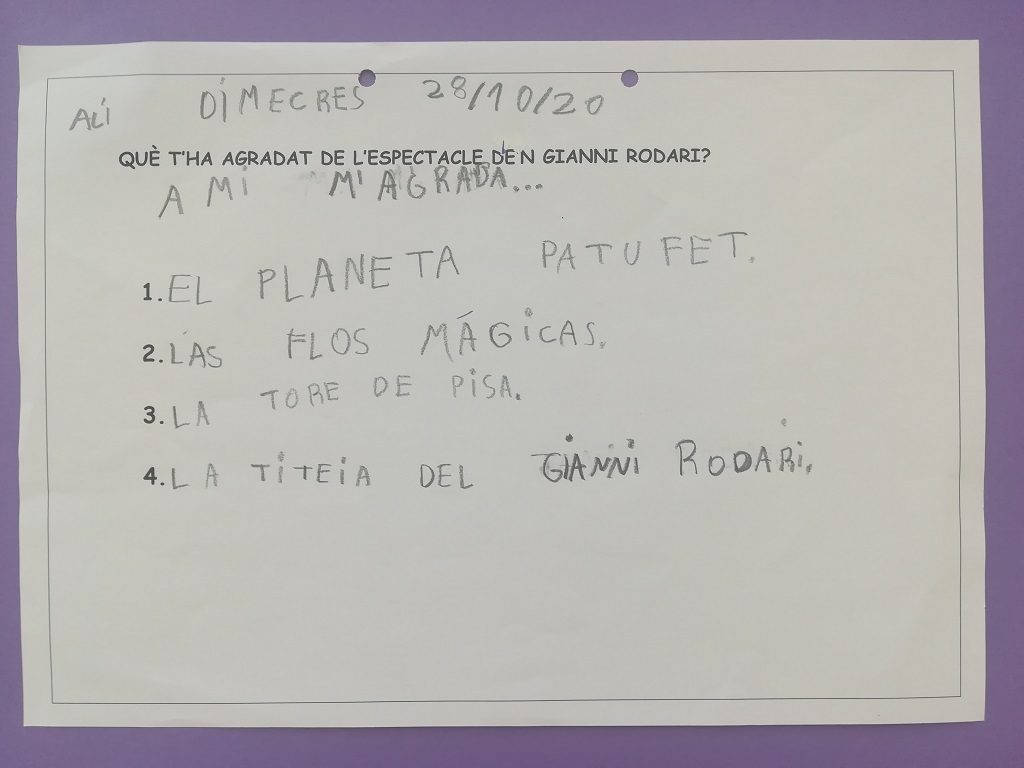 ALÍ DIMECRES 28/10/20
QUÈ T'HA AGRADAT DE L'ESPECTACLE D'EN GIANNI RODARI?
A MI M'AGRADA...
1. EL PLANETA PATUFET.
2. LAS FLOS MÁGICAS.
3. LA TORE DE PISA.
4. LA TITEIA DEL GIANNI RODARI.